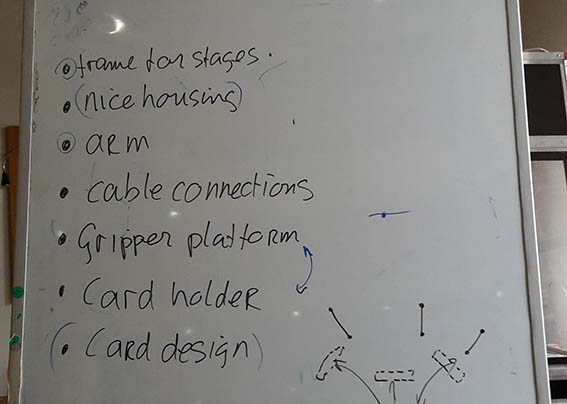 frame for stages.
(nice housing)
arm
cable connections
Gripper platform
Card holder
(Card design)